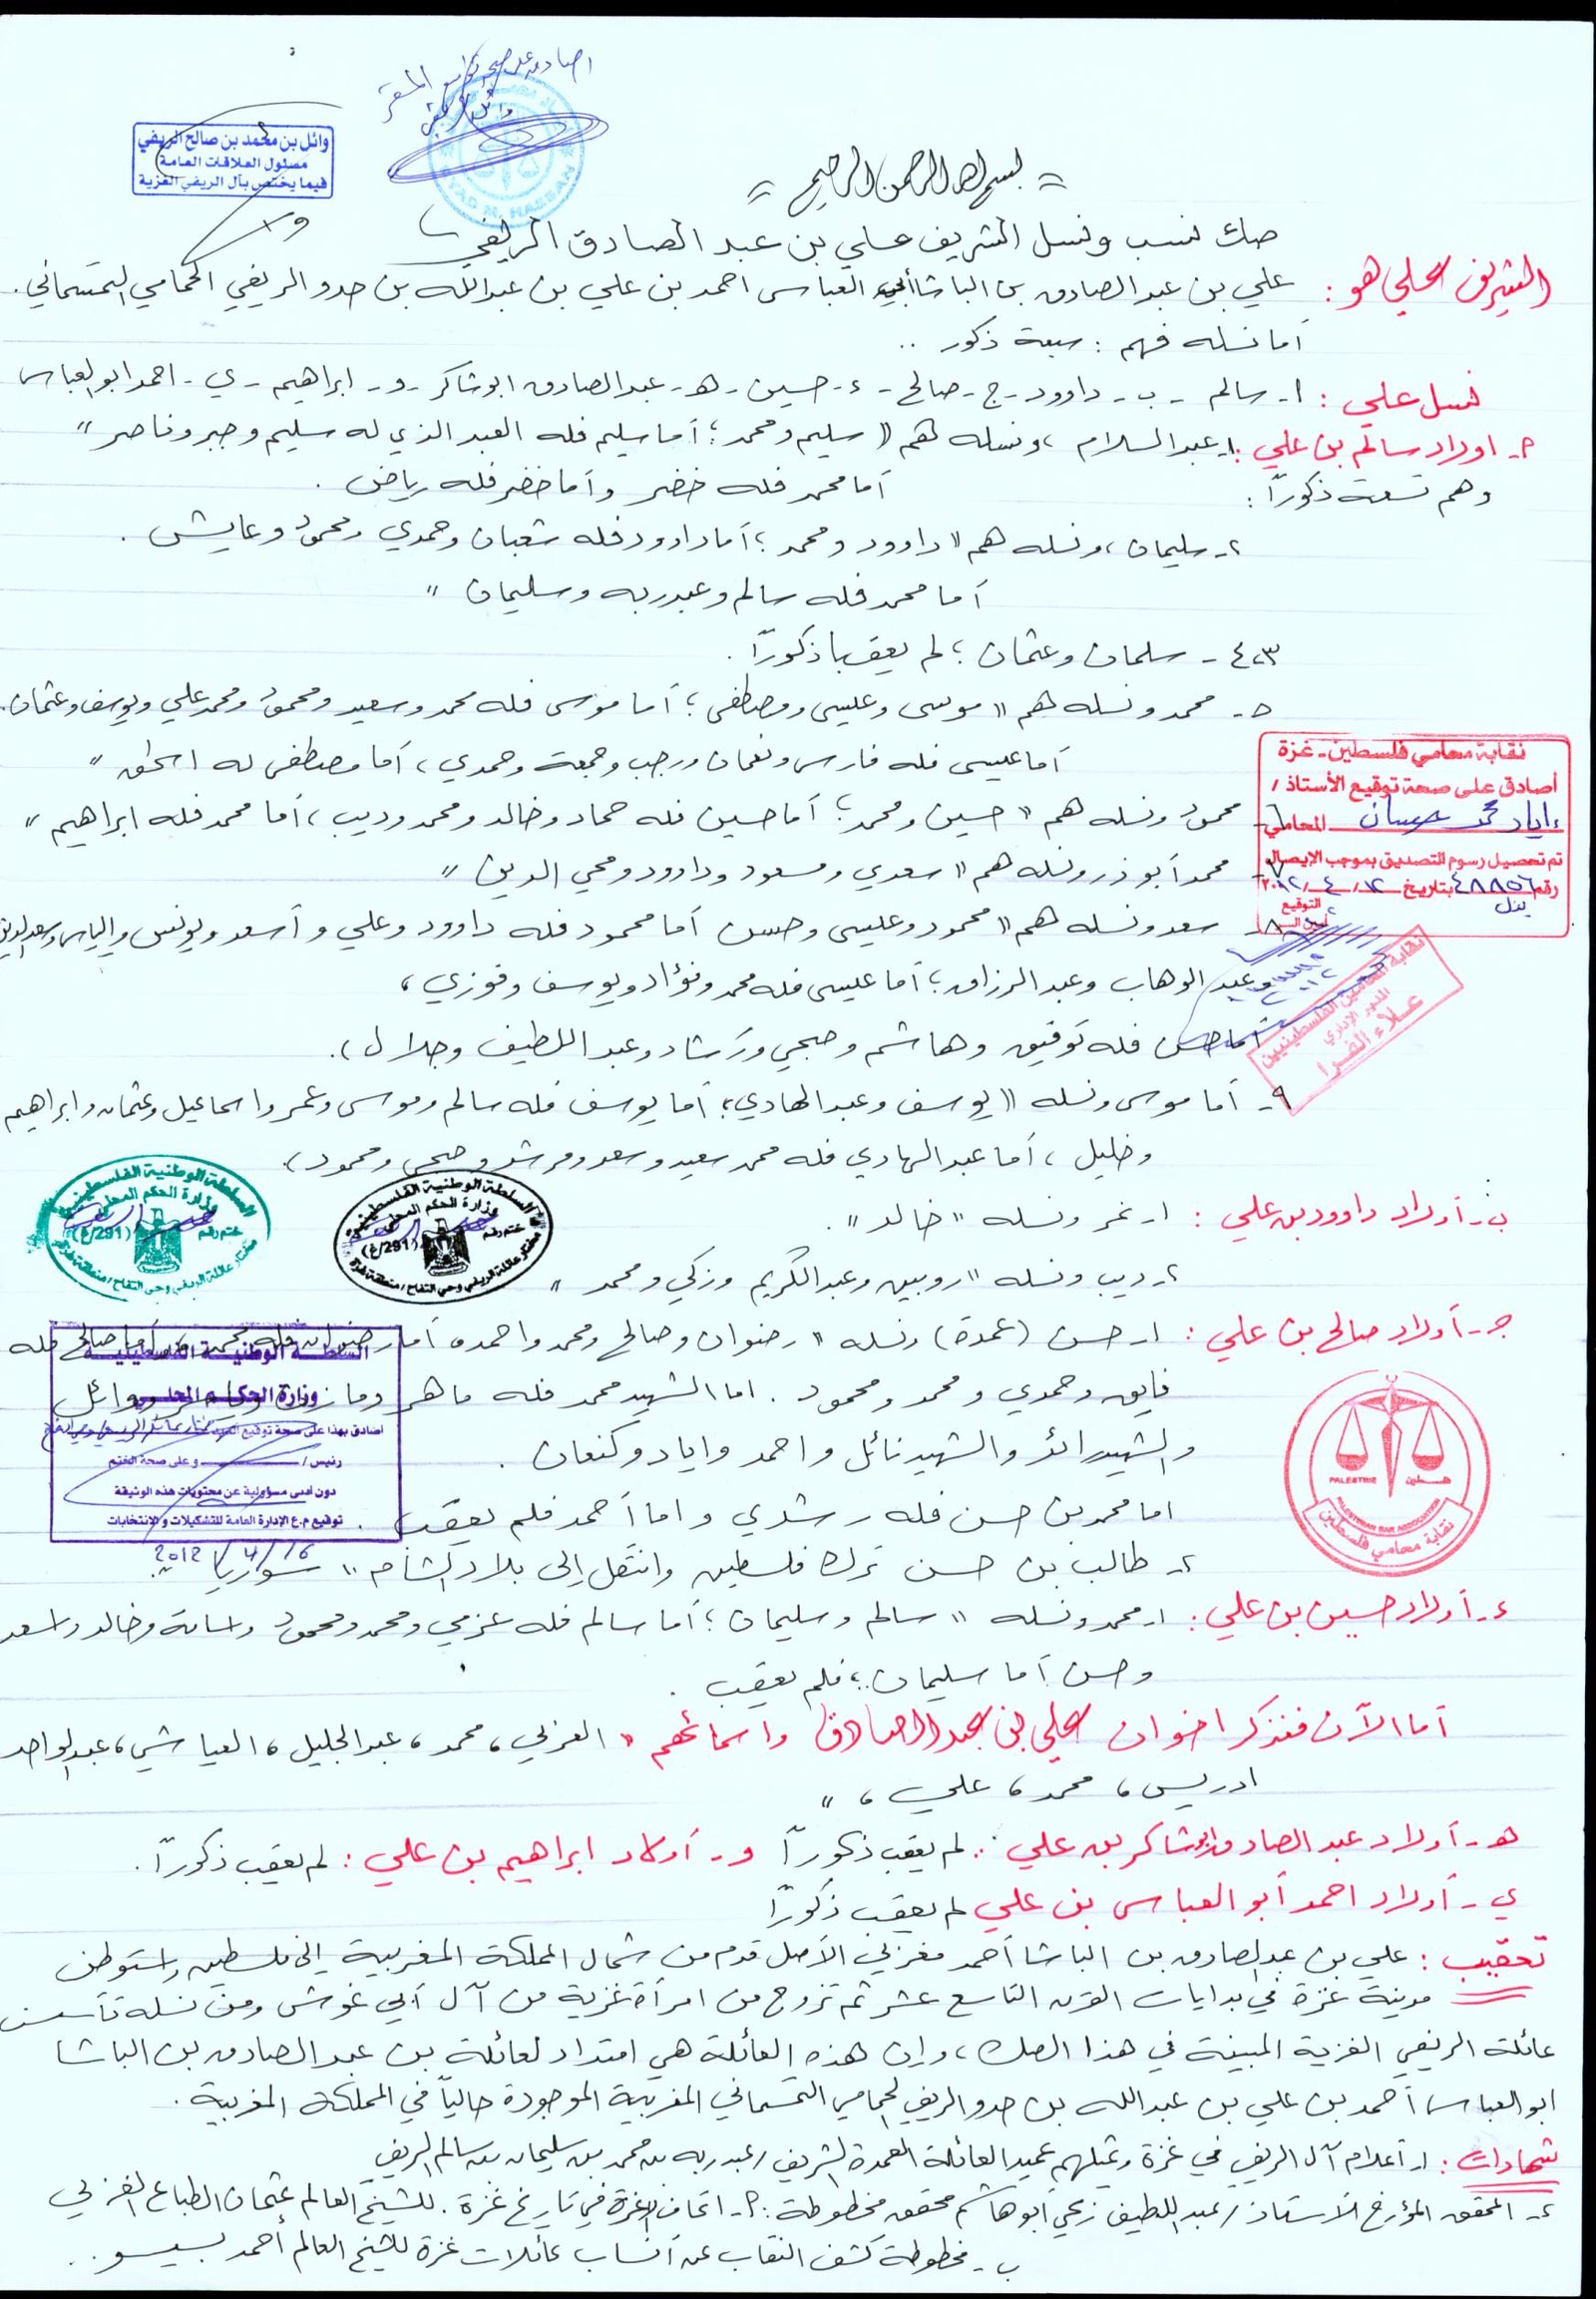 اصادق على صحة توقيع المقر
وائل الريفي
EYAD M. HASSAN
وائل بن محمد بن صالح الريفي
مسئول العلاقات العامة
فيما يختص بآل الريفي الغزية
= بسم الله الرحمن الرحيم =
صك نسب ونسل الشريف علي بن عبد الصادق الريفي
الشريف علي هو : علي بن عبد الصادق بن الباشا أبي العباس احمد بن علي بن عبد الله بن حدو الريفي الحمامي التمسماني .
أما نسله فهم : سبعة ذكور ..
نسل علي : ا- سالم - ب - داوود - ج - صالح - د - حسين - هـ - عبد الصادق ابو شاكر - و - ابراهيم - ي - احمد ابو العباس
أ- اولاد سالم بن علي : ١- عبد السلام ، ونسله هم (( سليم ومحمد ؛ أما سليم فله العبد الذي له سليم وجبر وناصر ))
وهم تسعة ذكوراً : أما محمد فله خضر وأما خضر فله رياض .
٢- سليمان ، ونسله هم (( داوود ومحمد ؛ أما داوود فله شعبان وحمدي ومحمود وعايش .
أما محمد فله سالم وعبد ربه وسليمان ))
٣،٤ - سلمان وعثمان ؛ لم يعقبا ذكوراً .
٥- محمد ونسله هم (( موسى وعيسى ومصطفى ؛ أما موسى فله محمد وسعيد ومحمود ومحمد علي ويوسف وعثمان .
أما عيسى فله فارس ونعمان ورجب وجمعة وحمدي ، أما مصطفى له اسحق ))
نقابة محامي فلسطين - غزة
أصادق على صحة توقيع الأستاذ /
إياد محمد حسان المحامي
تم تحصيل رسوم التصديق بموجب الإيصال
رقم ٤٨٨٥٦ بتاريخ ١٢ / ٤ / ٢٠١٢
التوقيع
٦- محمود ونسله هم (( حسين ومحمد ؛ أما حسين فله حماد وخالد ومحمد وديب ، أما محمد فله ابراهيم ))
٧- محمد أبو ذر ونسله هم (( سعدي ومسعود وداوود ومحي الدين ))
٨- سعد ونسله هم (( محمود وعيسى وحسن أما محمود فله داوود وعلي وأسعد ويونس والياس وسعد الدين
وعبد الوهاب وعبد الرزاق ؛ أما عيسى فله محمد وفؤاد ويوسف وفوزي ،
أما حسن فله توفيق وهاشم وصبحي ورشاد وعبد اللطيف وجلال ) .
نقابة المحامين الفلسطينيين
علاء الفرا
٩- أما موسى ونسله (( يوسف وعبد الهادي ؛ أما يوسف فله سالم وموسى وعمر واسماعيل وعثمان وابراهيم
وخليل ، أما عبد الهادي فله محمد سعيد وسعد ومرشد وصبحي ومحمود ) .
السلطة الوطنية الفلسطينية
وزارة الحكم المحلي
ختم رقم (291/غ)
مختار عائلة الريفي وحي التفاح / منطقة غزة
السلطة الوطنية الفلسطينية
وزارة الحكم المحلي
ختم رقم (291/غ)
مختار عائلة الريفي وحي التفاح / منطقة غزة
ب- أولاد داوود بن علي : ١- نمر ونسله (( خالد )) .
٢- ديب ونسله (( روبين وعبد الكريم وزكي ومحمد ))
ج- أولاد صالح بن علي : ١- حسن (عمدة) ونسله (( رضوان وصالح ومحمد واحمد ، أما رضوان فله محمد ، أما صالح فله
فايق وحمدي ومحمد ومحمود . اما الشهيد محمد فله ماهر ومازن وياسر ووائل
والشهيد رائد والشهيد نائل واحمد واياد وكنعان .
اما محمد بن حسن فله رشدي واما أحمد فلم يعقب .
السلطة الوطنية الفلسطينية
وزارة الحكم المحلي
اصادق بهذا على صحة توقيع السيد مختار عائلة الريفي وحي التفاح
رئيس / و على صحة الختم
دون أدنى مسؤولية عن محتويات هذه الوثيقة
توقيع م.ع الإدارة العامة للتشكيلات والانتخابات
16/4/2012
PALESTINE فلسطين
PALESTINIAN BAR ASSOCIATION
نقابة محامي فلسطين
٢- طالب بن حسن ترك فلسطين وانتقل إلى بلاد الشام (( سوريا ))
د- أولاد حسين بن علي : ١- محمد ونسله (( سالم وسليمان ؛ أما سالم فله عزمي ومحمد ومحمود واسامة وخالد واسعد
وحسن أما سليمان ؛ فلم يعقب .
أما الآن فنذكر اخوان علي بن عبد الصادق واسمائهم (( العربي ، محمد ، عبد الجليل ، العياشي ، عبد الواحد
ادريس ، محمد ، علي ، ))
هـ- أولاد عبد الصادق ابو شاكر بن علي : لم يعقب ذكوراً و- أولاد ابراهيم بن علي : لم يعقب ذكوراً .
ي- أولاد احمد أبو العباس بن علي لم يعقب ذكوراً
تعقيب : علي بن عبد الصادق بن الباشا أحمد مغربي الأصل قدم من شمال المملكة المغربية إلى فلسطين واستوطن
مدينة غزة في بدايات القرن التاسع عشر ثم تزوج من امرأة غزية من آل أبي غوش ومن نسله تأسست
عائلة الريفي الغزية المبينة في هذا الصك ، وإن هذه العائلة هي امتداد لعائلة بن عبد الصادق بن الباشا
ابو العباس أحمد بن علي بن عبد الله بن حدو الريفي الحمامي التمسماني المغربية الموجودة حالياً في المملكة المغربية .
شهادات : ١- أعلام آل الريفي في غزة ويمثلهم عميد العائلة العمدة الشريف / عبد ربه بن محمد بن سليمان بن سالم الريفي
٢- المحقق المؤرخ الأستاذ / عبد اللطيف زكي أبو هاشم محقق مخطوطة : أ- اتحاف الاعزة في تاريخ غزة . للشيخ العالم عثمان الطباع الغزي
ب- مخطوطة كشف النقاب عن أنساب عائلات غزة للشيخ العالم أحمد بسيسو ..